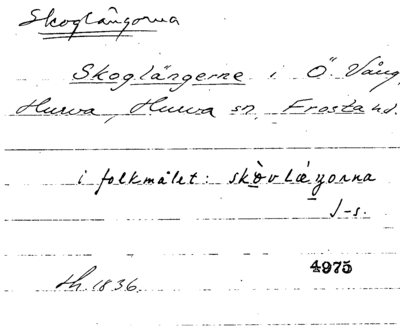 Skoglängorna
Skoglängerne i Ö. Vång,
Hurva, Hurva sn, Frosta hd.
i folkmålet: skòvlæ̀yorna
J-s.
4975
th. 1836.